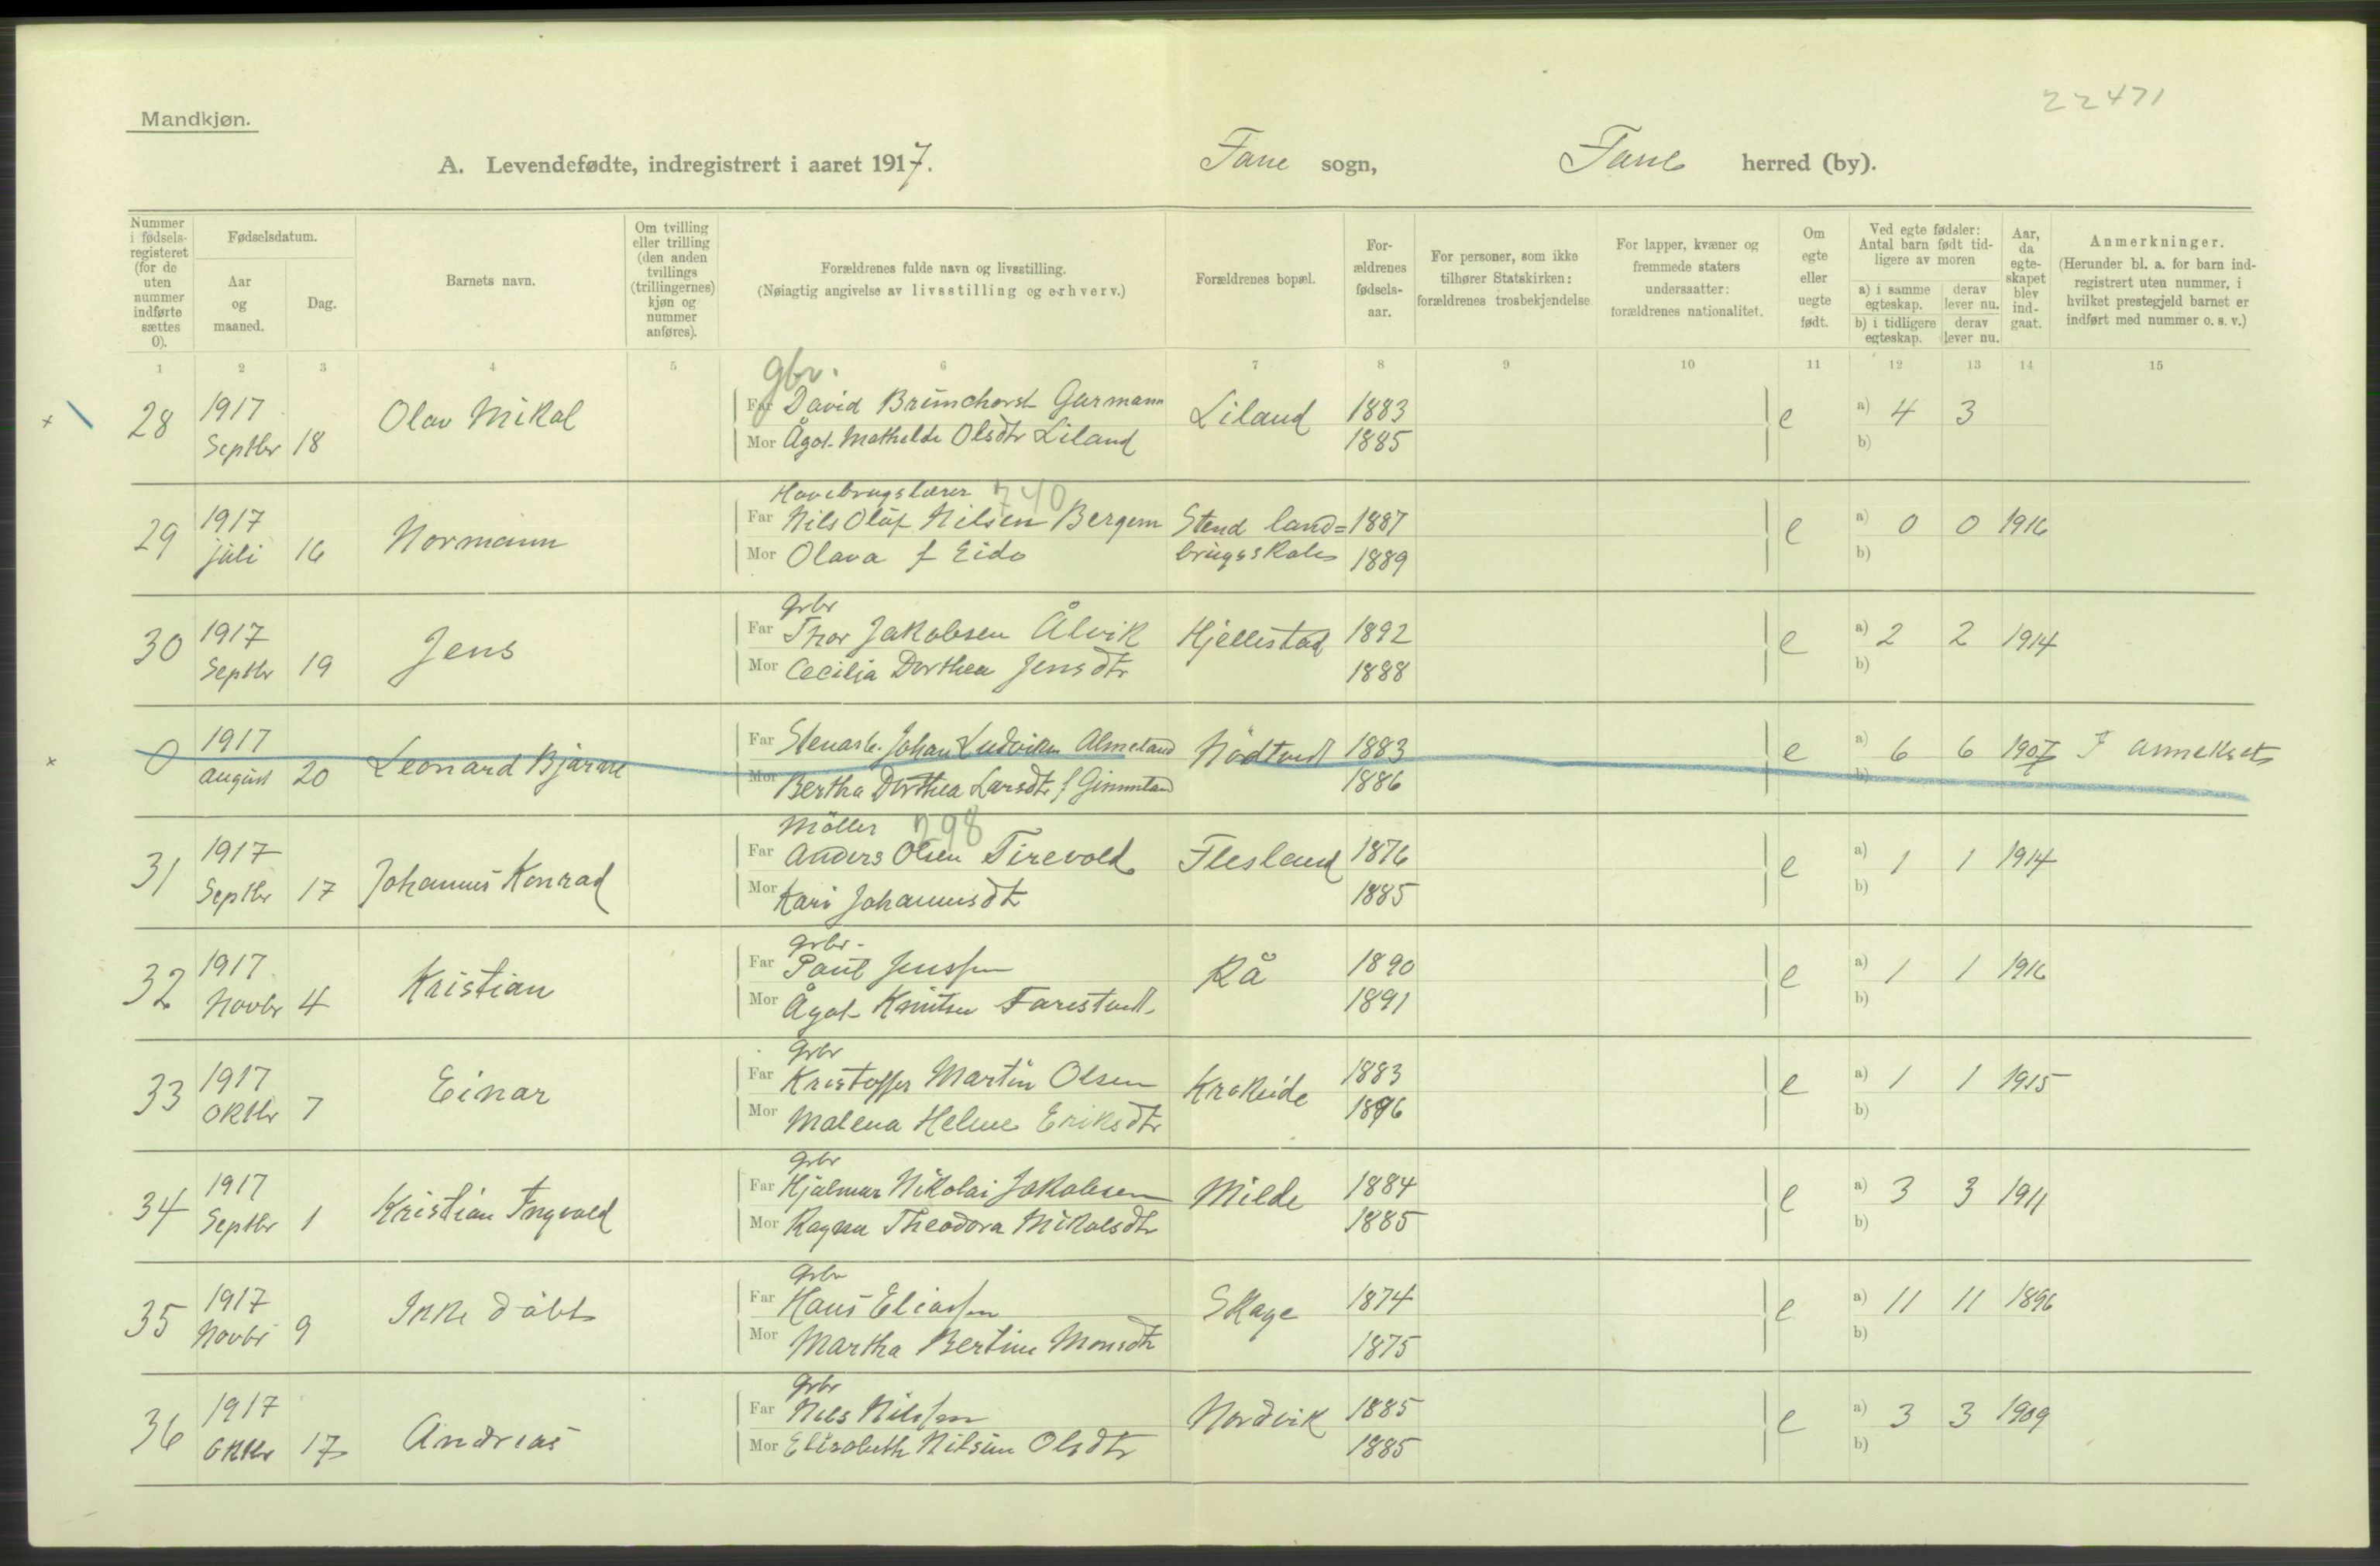 22471
Mandkjøn.
A. Levendefødte, indregistrert i aaret 1917. Fane sogn, Fane herred (by).
Nummer i fødselsregisteret (for de uten nummer indførte sættes 0).
Fødselsdatum.
Aar og maaned.
Dag.
Barnets navn.
Om tvilling eller trilling (den anden tvillings (trillingernes) kjøn og nummer anføres).
Forældrenes fulde navn og livsstilling.
(Nøiagtig angivelse av livsstilling og erhverv.)
Forældrenes bopæl.
Forældrenes fødselsaar.
For personer, som ikke tilhører Statskirken: forældrenes trosbekjendelse
For lapper, kvæner og fremmede staters undersaatter: forældrenes nationalitet.
Om egte eller uegte født.
Ved egte fødsler: Antal barn født tidligere av moren
a) i samme egteskap. derav lever nu.
b) i tidligere egteskap. derav lever nu.
Aar, da egteskapet blev indgaat.
Anmerkninger.
(Herunder bl. a. for barn indregistrert uten nummer, i hvilket prestegjeld barnet er indført med nummer o. s. v.)
1 2 3 4 5 6 7 8 9 10 11 12 13 14 15
gbr.
28 1917 Olav Mikal Far David Brunchorst Garmann Liland 1883 e a) 4 3
Septbr 18 Mor Ågot Mathilde Olsdtr Liland 1885 b)
Havebrugslærer 740
29 1917 Normann Far Nils Olaf Nilsen Bergem Stend land= 1887 e a) 0 0 1916
juli 16 Mor Olava f Eide brugsskole 1889 b)
grbr
30 1917 Jens Far Thor Jakobsen Ålvik Hjellestad 1892 e a) 2 2 1914
Septbr 19 Mor Cecilia Dorthea Jensdtr 1888 b)
0 1917 Leonard Bjarne Far Stenarb. Johan Ludviksen Almeland Nødtvedt 1883 e a) 6 6 1907 I annekset
august 20 Mor Bertha Dorthea Larsdtr f 1886 b)
Möller 298
31 1917 Johannes Konrad Far Anders Olsen Tirevold Flesland 1876 e a) 1 1 1914
Septbr 17 Mor Kari Johannesdtr 1885 b)
grbr.
32 1917 Kristian Far Paul Jenssen Rå 1890 e a) 1 1 1916
Novbr 4 Mor Ågot Knutsen Farestvedt 1891 b)
grbr
33 1917 Einar Far Kristoffer Martin Olsen Krokeide 1883 e a) 1 1 1915
Oktbr 7 Mor Malena Helene Eriksdtr 1896 b)
grbr
34 1917 Kristian Ingvald Far Hjalmar Nikolai Jakobsen Milde 1884 e a) 3 3 1911
Septbr 1 Mor Ragna Theodora Mikalsdtr 1885 b)
grbr
35 1917 Ikke döbt Far Hans Eliassen Skage 1874 e a) 11 11 1896
Novbr 9 Mor Martha Bertine Monsdtr 1875 b)
grbr
36 1917 Andreas Far Nils Nilssen Nordvik 1885 e a) 3 3 1909
Oktbr 17 Mor Elisabeth Nilsine Olsdtr 1885 b)